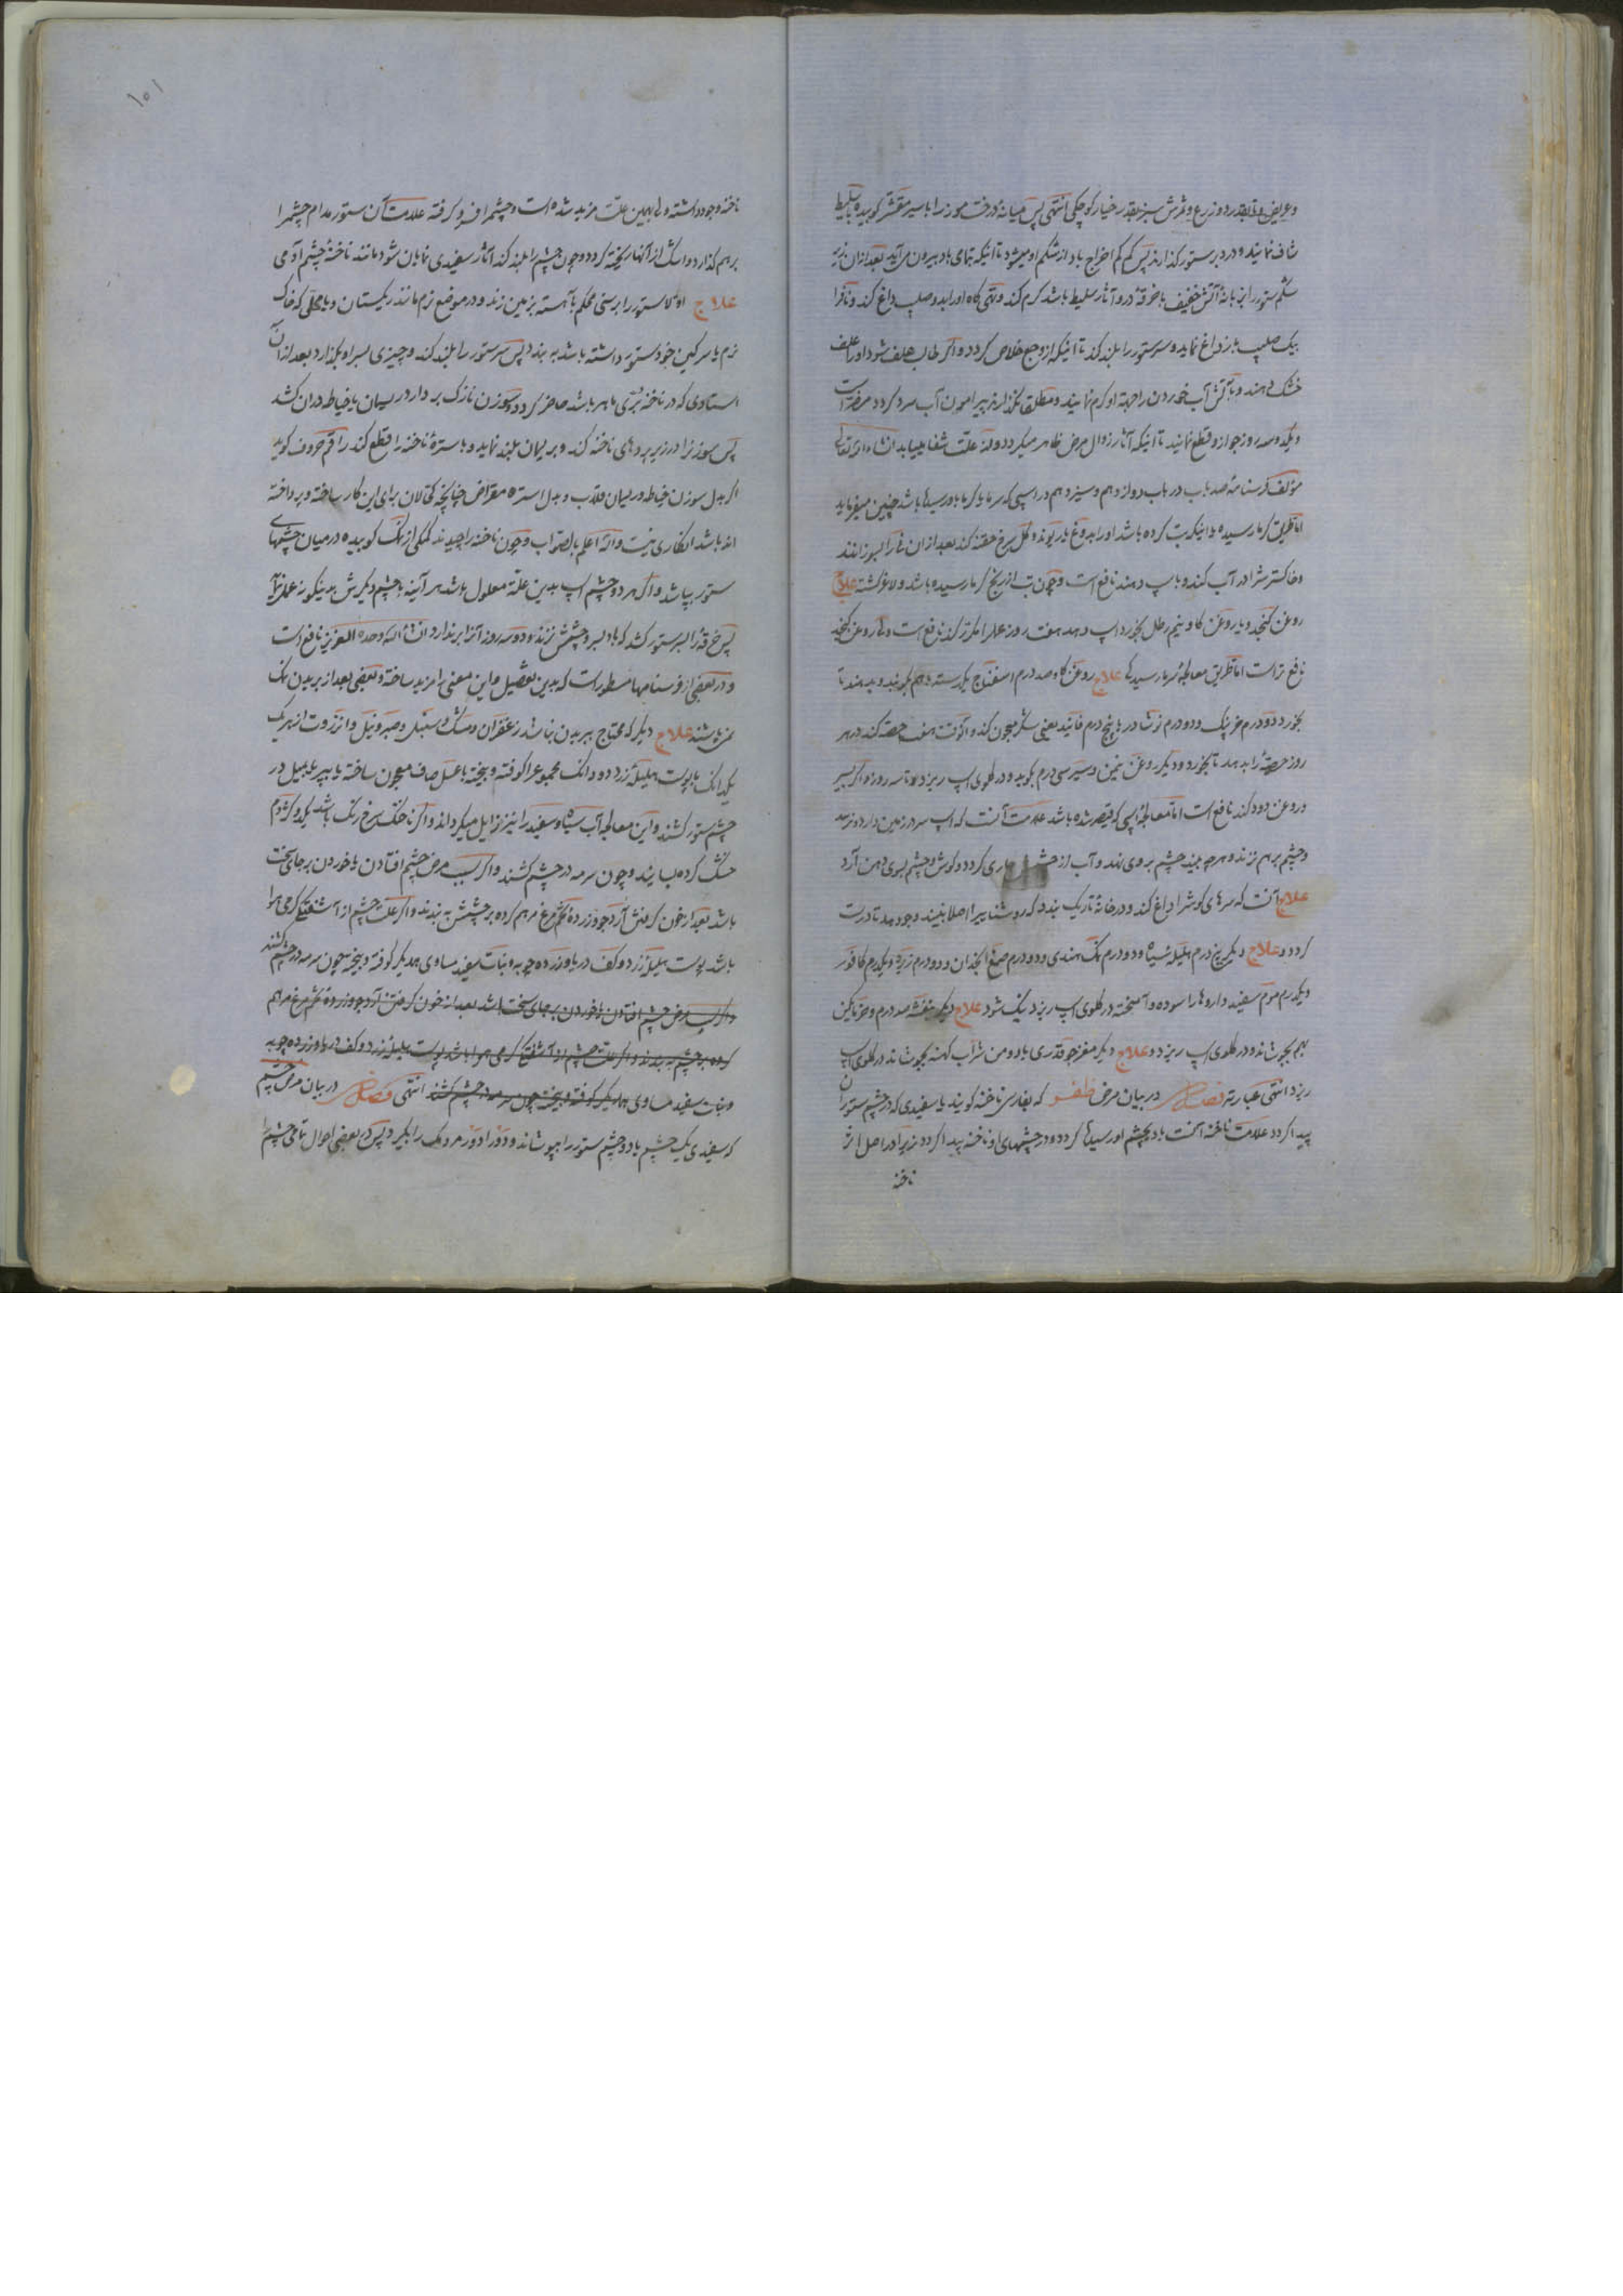 و عریض و بقدر دو زرع و ثمرش سبز بقدر خیار کوچکی انتهی پس میانه درخت موز را با سیر مقشر کوبیده با سلیط
شاف نمایند و در دبر ستور گذارند پس کم کم اخراج باد از شکم او میشود تا اینکه تمامی باد بیرون می‌آید بعد از آن زیر
شکم ستور را بزبانهٔ آتش خفیف با خرقهٔ در و آثار سلیط باشد گرم کند و تهی گاه او را بدو صلیب داغ کند و ناف را
بیک صلیب داغ نماید و سر ستور را بلند کند تا اینکه از وجع خلاص گردد و اگر طالب علف شود او را علف
خشک دهند و آب خوردن را جهة او گرم نمایند و مطلق نگذارند پیرامون آب سرد گردد
و یکدو سه روز جو از و قطع نمایند تا اینکه آثار زوال مرض ظاهر میگردد و از علّت شفا مییابد انشاء الله تعالی
مؤلف فرسنامهٔ صد باب در باب دوازدهم و سیزدهم در اسپی که سرما یا گرما باو رسیده باشد چنین میفرماید
اما طریق گرما رسیده با اینکه تب کرده باشد او را بدوغ با ریوند و گل سرخ حقنه کند بعد از آن نی را بسوزانند
و خاکسترش را در آب کند و باسپ دهند نافع است و چون تب از رنج گرما رسیده باشد و لاغر گشته علاج
روغن کنجد و یا روغن گاو نیم رطل بخورد اسپ دهد هفت روز علی‌الدوام نافع است ولی روغن کنجد
نافع‌تر است اما طریق معالجهٔ سرما رسیدگی علاج روغن گاو صد درم اسفناج یکدسته باهم بجوشند و بدهند تا
بخورد و دو درم خربک و دو درم نوشادر با پنج درم فانید یعنی شکر معجون کند و آنوقت هفت حصه کند در هر
روز حصهٔ را بدهد تا بخورد و دیگر روغن ثمین و سیر سی درم بکوبد و در گلوی اسپ ریزد تا سه روز و اگر سیر
در روغن دود کند نافع است اما معالجهٔ اسپی که قیصر شده باشد علامت آنست که اسپ سر در زمین دارد و نرمد
و چشم برهم زند و هر چه بیند چشم بروی نهد و آب از چشم جاری گردد و گوش و چشم بسوی دهن آرد
علاج آنست که سرهای گوش را داغ کند و در خانهٔ تاریک بندد که روشنایی را اصلا نبیند و جو دهد تا درست
گردد و علاج دیگر پنج درم هلیلهٔ سیاه و دو درم نمک هندی و دو درم صمغ انجدان و دو درم زیره و یکدرم کافور
و یکدرم موم سفید داروها را سوده و آمیخته در گلوی اسپ ریزد نیک شود علاج دیگر بنفشه صد درم
بهم بجوشاند و در گلوی اسپ ریزد و علاج دیگر مغز جو قدری با دو من شراب کهنه بجوشاند در گلوی اسپ
ریزد انتهی عبارته فصل در بیان مرض ظفر که بفارسی ناخنه گویند یا سفیدی که در چشم ستوران
پیدا گردد علامت ناخنه آنست باد بچشم او رسیده گردد و در چشمهای او ناخنه پیدا گردد زیرا در اصل اثر
ناخنه
۱۰۱
ناخنه وجود داشته ولی بهمین علّت مزید شده است و چشم را فرو گرفته علامت آن ستور مدام چشم را
برهم گذارد و اشک از آنها ریخته گردد و چون چشم را بلند کند آثار سفیدی نمایان شود مانند ناخنهٔ چشم آدمی
علاج اولا ستور را برسنی محکم بآهسته بزمین زند و در موضع نرم مانند ریگستان و یا محلی که خاک
نرم یا سرگین خود ستور داشته باشد به بندد پس سر ستور را بلند کند و چیزی بسر او بگذارد بعد از آن
استادی که در ناخنه بُرّی ماهر باشد حاضر گردد و سوزن نازک بردارد ریسمان یا خیاطه در آن کشد
پس سوزن را در زیر پردهای ناخنه کند و بریسمان بلند نماید و با سترهٔ ناخنه را قطع کند راقم حروف گوید
اگر بدل سوزن خیاطه و ریسمان قلاب و بدل استره مقراض چنانچه کحالان برای این کار ساخته و پرداخته
اند باشد انکاری نیست والله اعلم بالصواب و چون ناخنه را چیدند کمکی از نمک کوبیده در میان چشمهای
ستور بپاشد و اگر هر دو چشم اسپ بدین علّة معلول باشد هر آینه با چشم دیگرش بهمینگونه عمل نماید
پس خرقهٔ را بسر ستور کشد که باد بسر و چشمش نزند و دو سه روز آنرا بر ندارد انشاء الله وحده العزیز نافع است
و در بعضی از فرسنامها مسطور است که بدین تفضیل و این معنی را مزید ساخته و بعضی بعد از بریدن نمک
علاج دیگر که محتاج ببریدن نباشد زعفران و مشک و سنبل و صبر و نیل و انزروت از هر یک
یکدانگ با پوست هلیلهٔ زرد دو دانگ مجموع را کوفته و بیخته با عسل صاف معجون ساخته بمیل در
چشم ستور کشند و این معالجه آب سیاه و سفید را نیز زایل میگرداند و اگر ناخنک سرخ رنگ باشد
خشک کرده بسایند و چون سرمه در چشم کشند و اگر سبب مرض چشم افتادن یا خوردن بر جای سخت
باشد بعد از خون گرفتن آرد جو و زردهٔ تخم مرغ مرهم کرده بر چشمش به بندند و اگر علّت چشم از آشفتگی گرمی هوا
باشد پوست هلیلهٔ زرد و کف دریا و زرده چوبه و نبات سفید مساوی همدیگر کوفته و بیخته چون سرمه در چشم کشند
و اگر سبب مرض چشم افتادن یا خوردن بر جای سخت باشد بعد از خون گرفتن آرد جو و زردهٔ تخم مرغ مرهم
کرده بر چشم به بندند و اگر علّت چشم از آشفتگی گرمی هوا باشد پوست هلیلهٔ زرد و کف دریا و زرده چوبه
و نبات سفید مساوی همدیگر کوفته و بیخته چون سرمه در چشم کشند انتهی فصل در بیان مرض چشم
که سفیدی یک چشم یا دو چشم ستور را بپوشاند و دَور ادَور مردمک را بگیرد پس در بعضی احوال تمامی چشم را